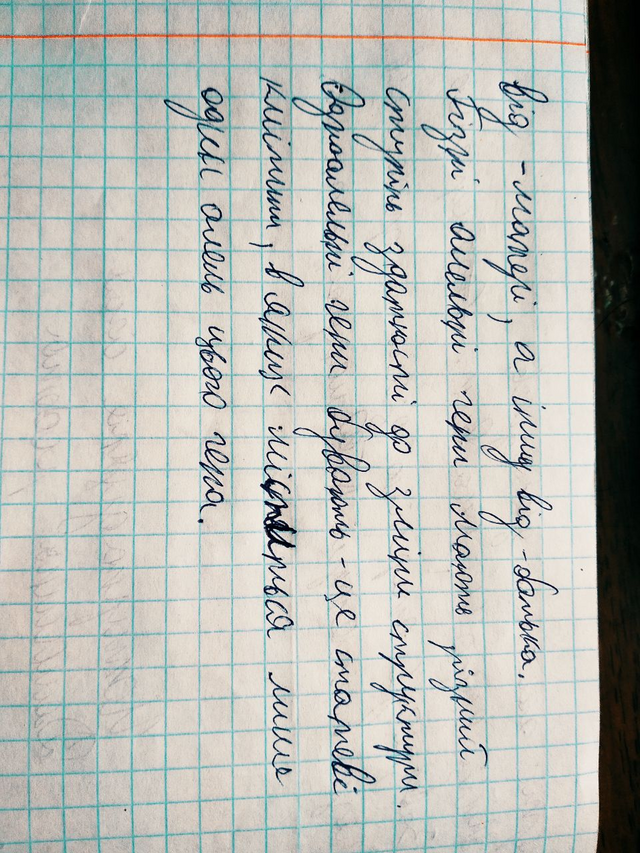 від - матері, а інш від - батька.
Різні алельні гени мають різний
ступінь здатності до зміни структури.
Одноалельні гени бувають - це статеві
клітини, в яких міститься лише
один алель цього гена.